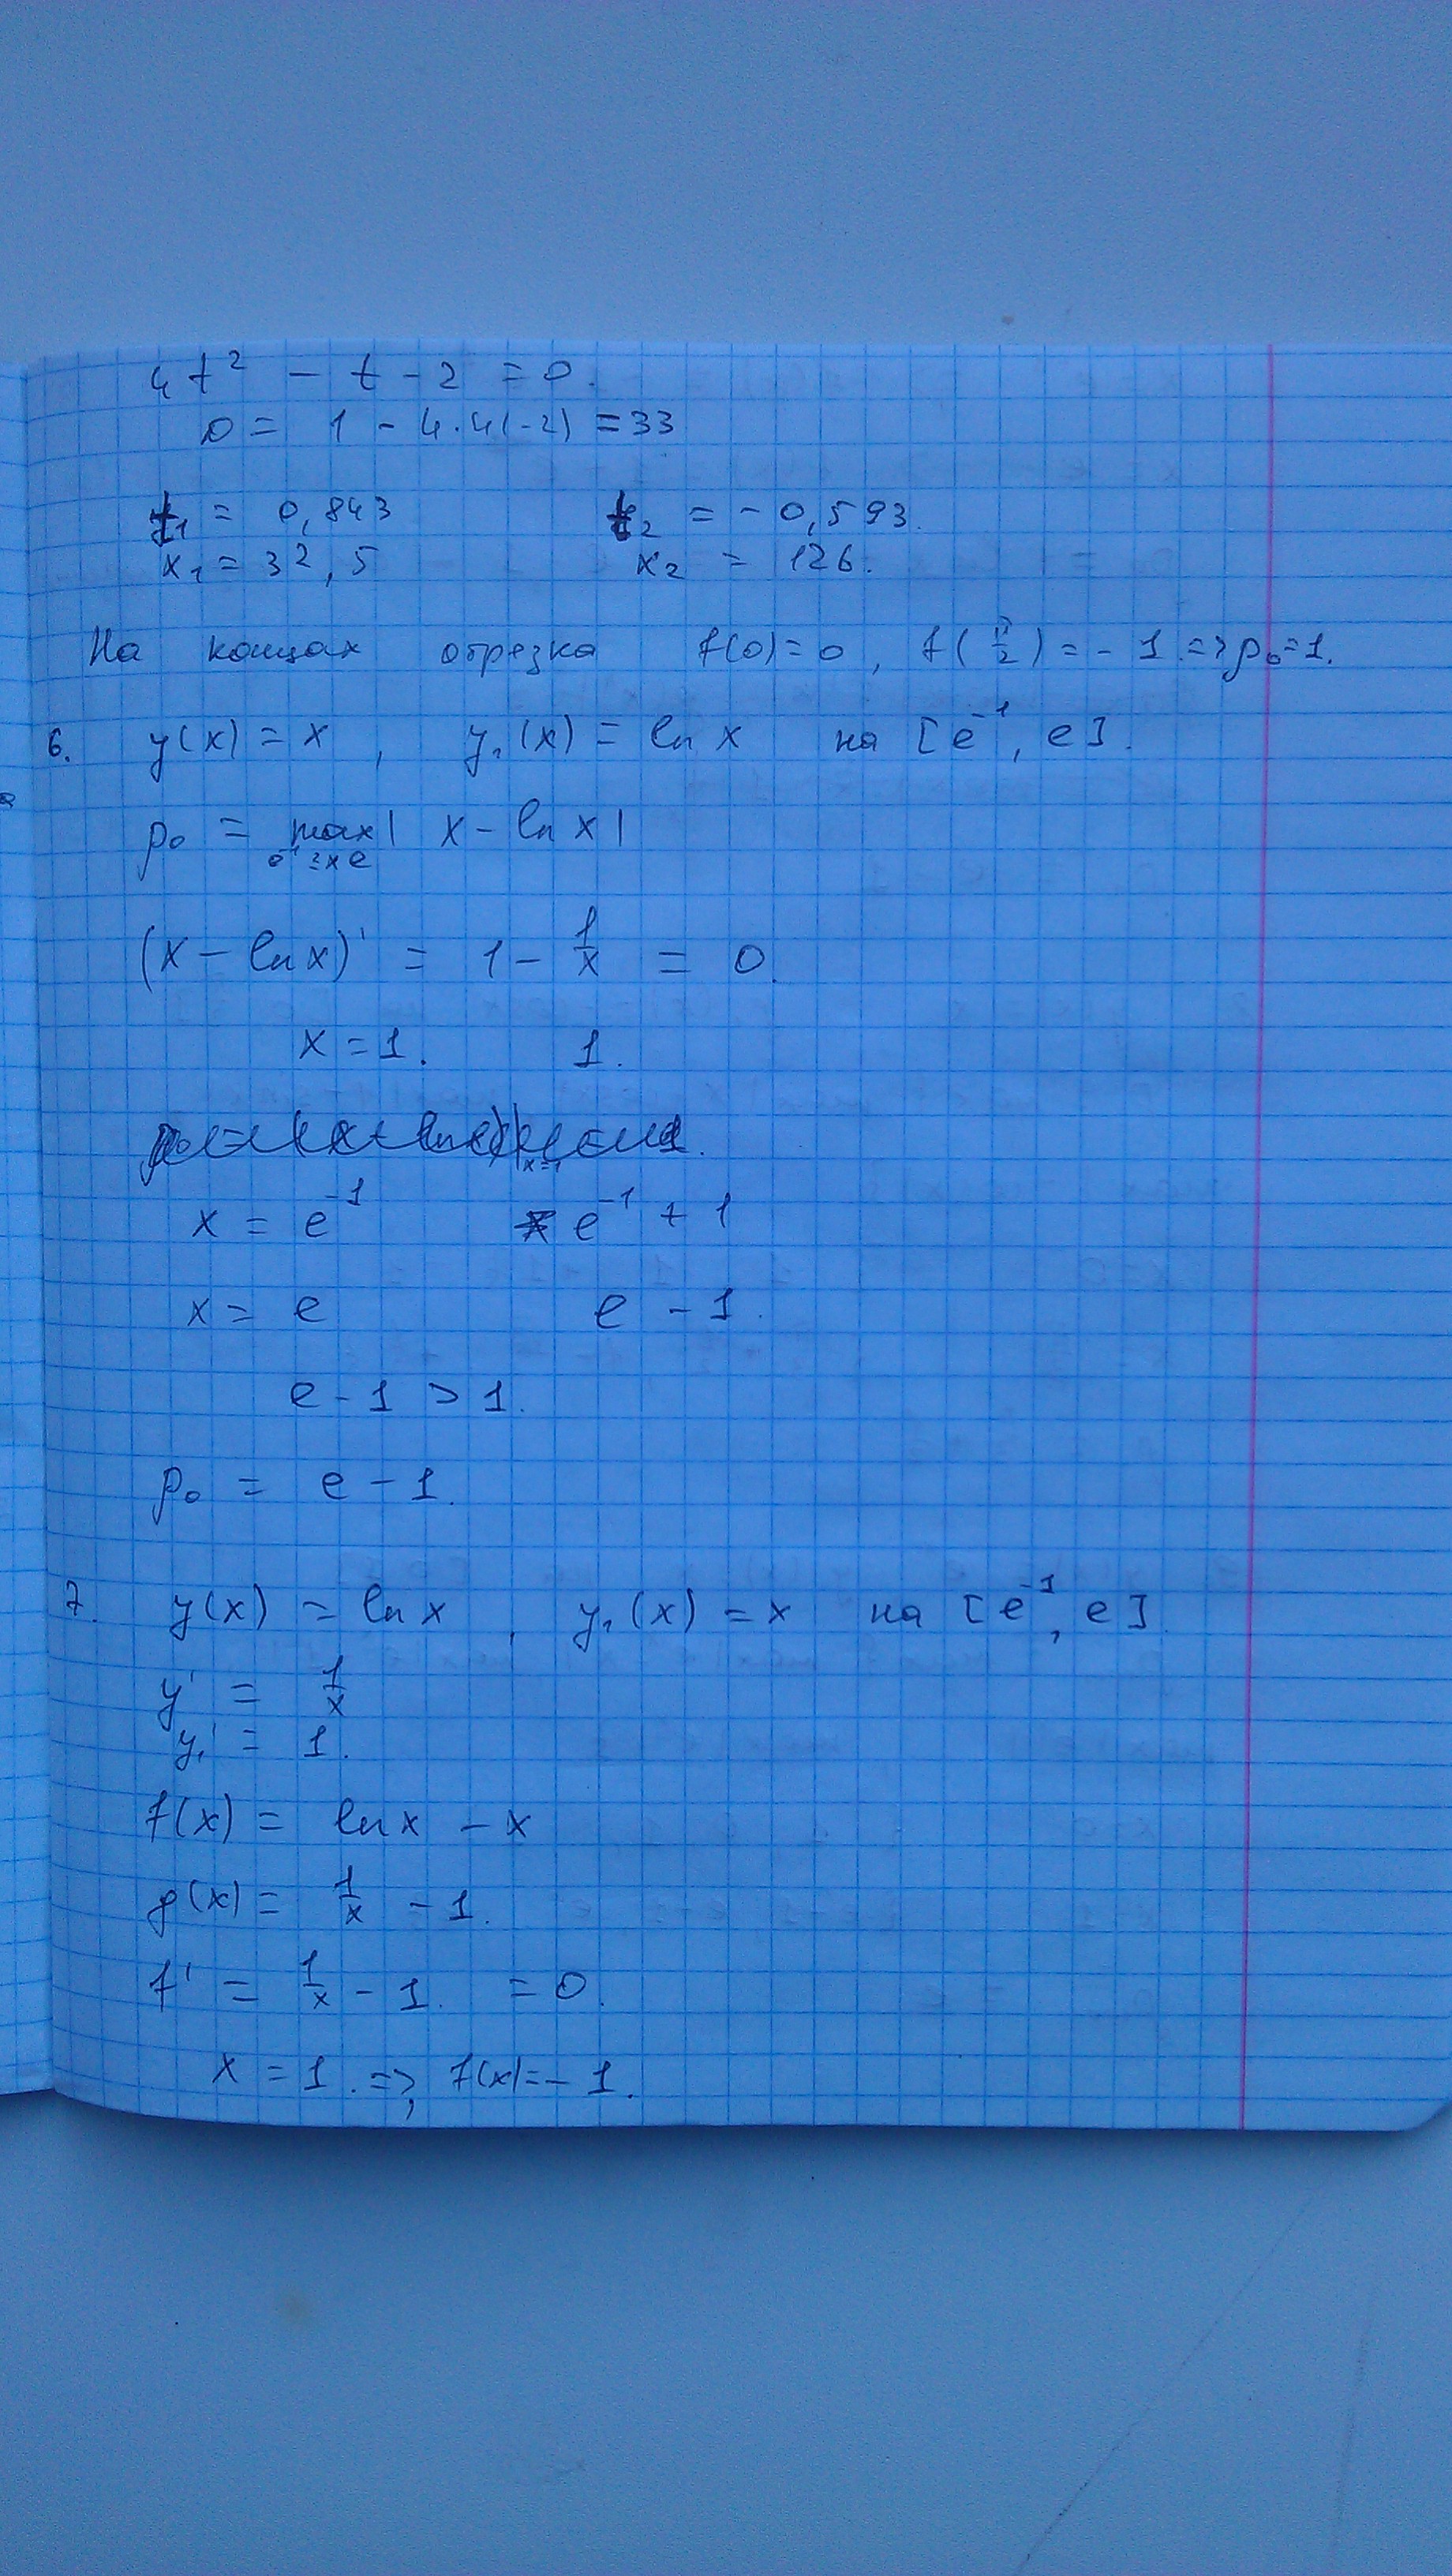 4t² − t − 2 = 0.
D = 1 − 4·4(−2) = 33
t₁ = 0,843 t₂ = −0,593.
x₁ = 32,5 x₂ = 126.
На концах отрезка f(0)=0, f(π/2) = −1. => ρ₀=1.
6. y(x) = x, y₁(x) = ln x на [e⁻¹, e].
ρ₀ = max | x − ln x |
(x − ln x)' = 1 − 1/x = 0.
x = 1. 1.
x = e⁻¹ e⁻¹ + 1
x = e e − 1.
e − 1 > 1.
ρ₀ = e − 1.
7. y(x) = ln x, y₁(x) = x на [e⁻¹, e].
y' = 1/x
y₁' = 1.
f(x) = ln x − x
g(x) = 1/x − 1.
f' = 1/x − 1. = 0.
x = 1. =>, f(x) = −1.